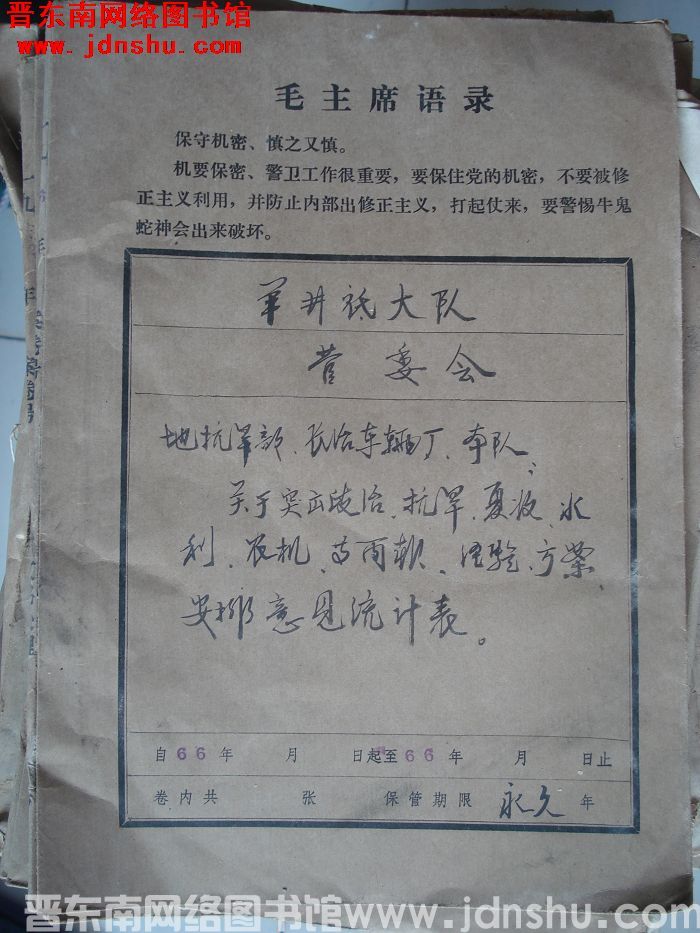 晋东南网络图书馆
www.jdnshu.com
毛主席语录
保守机密、慎之又慎。
机要保密、警卫工作很重要，要保住党的机密，不要被修
正主义利用，并防止内部出修正主义，打起仗来，要警惕牛鬼
蛇神会出来破坏。
羊井底大队
营委会
地抗旱部、长治车辆厂、本队、
关于突出政治、抗旱、夏收、水
利、农机、苏两软、经验、方案
安排意见统计表。
自66年 月 日起至66年 月 日止
卷内共 张 保管期限 永久 年
晋东南网络图书馆 www.jdnshu.com